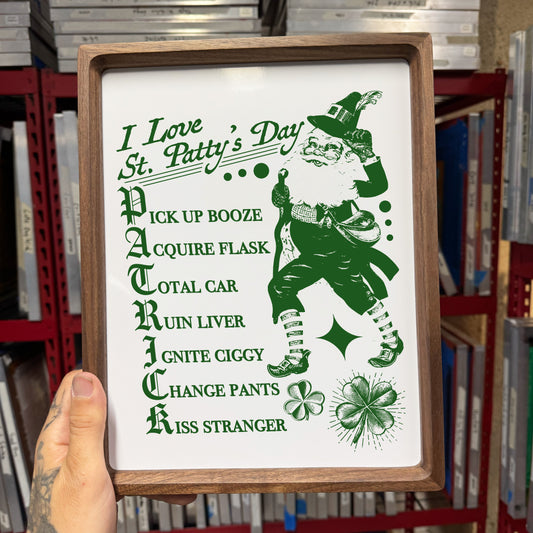 I Love
St. Patty's Day
PICK UP BOOZE
ACQUIRE FLASK
TOTAL CAR
RUIN LIVER
IGNITE CIGGY
CHANGE PANTS
KISS STRANGER